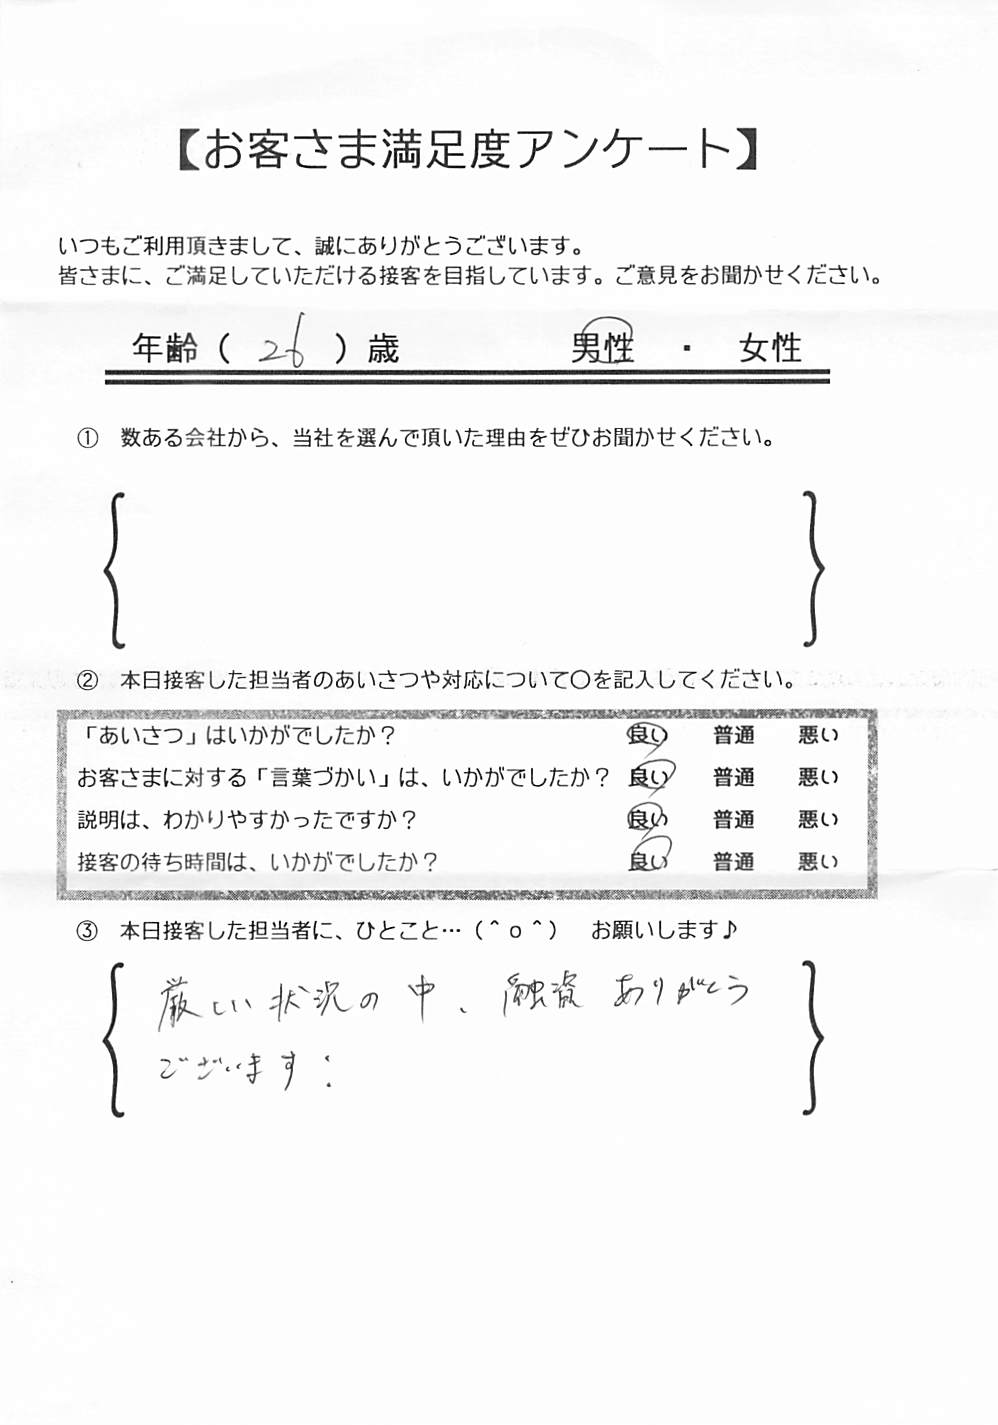 【お客さま満足度アンケート】
いつもご利用頂きまして、誠にありがとうございます。
皆さまに、ご満足していただける接客を目指しています。ご意見をお聞かせください。
年齢（ 26 ）歳　男性 ・ 女性
① 数ある会社から、当社を選んで頂いた理由をぜひお聞かせください。
② 本日接客した担当者のあいさつや対応について〇を記入してください。
「あいさつ」はいかがでしたか？ 良い 普通 悪い
お客さまに対する「言葉づかい」は、いかがでしたか？ 良い 普通 悪い
説明は、わかりやすかったですか？ 良い 普通 悪い
接客の待ち時間は、いかがでしたか？ 良い 普通 悪い
③ 本日接客した担当者に、ひとこと…（＾ｏ＾） お願いします♪
厳しい状況の中、融資ありがとう
ございます！